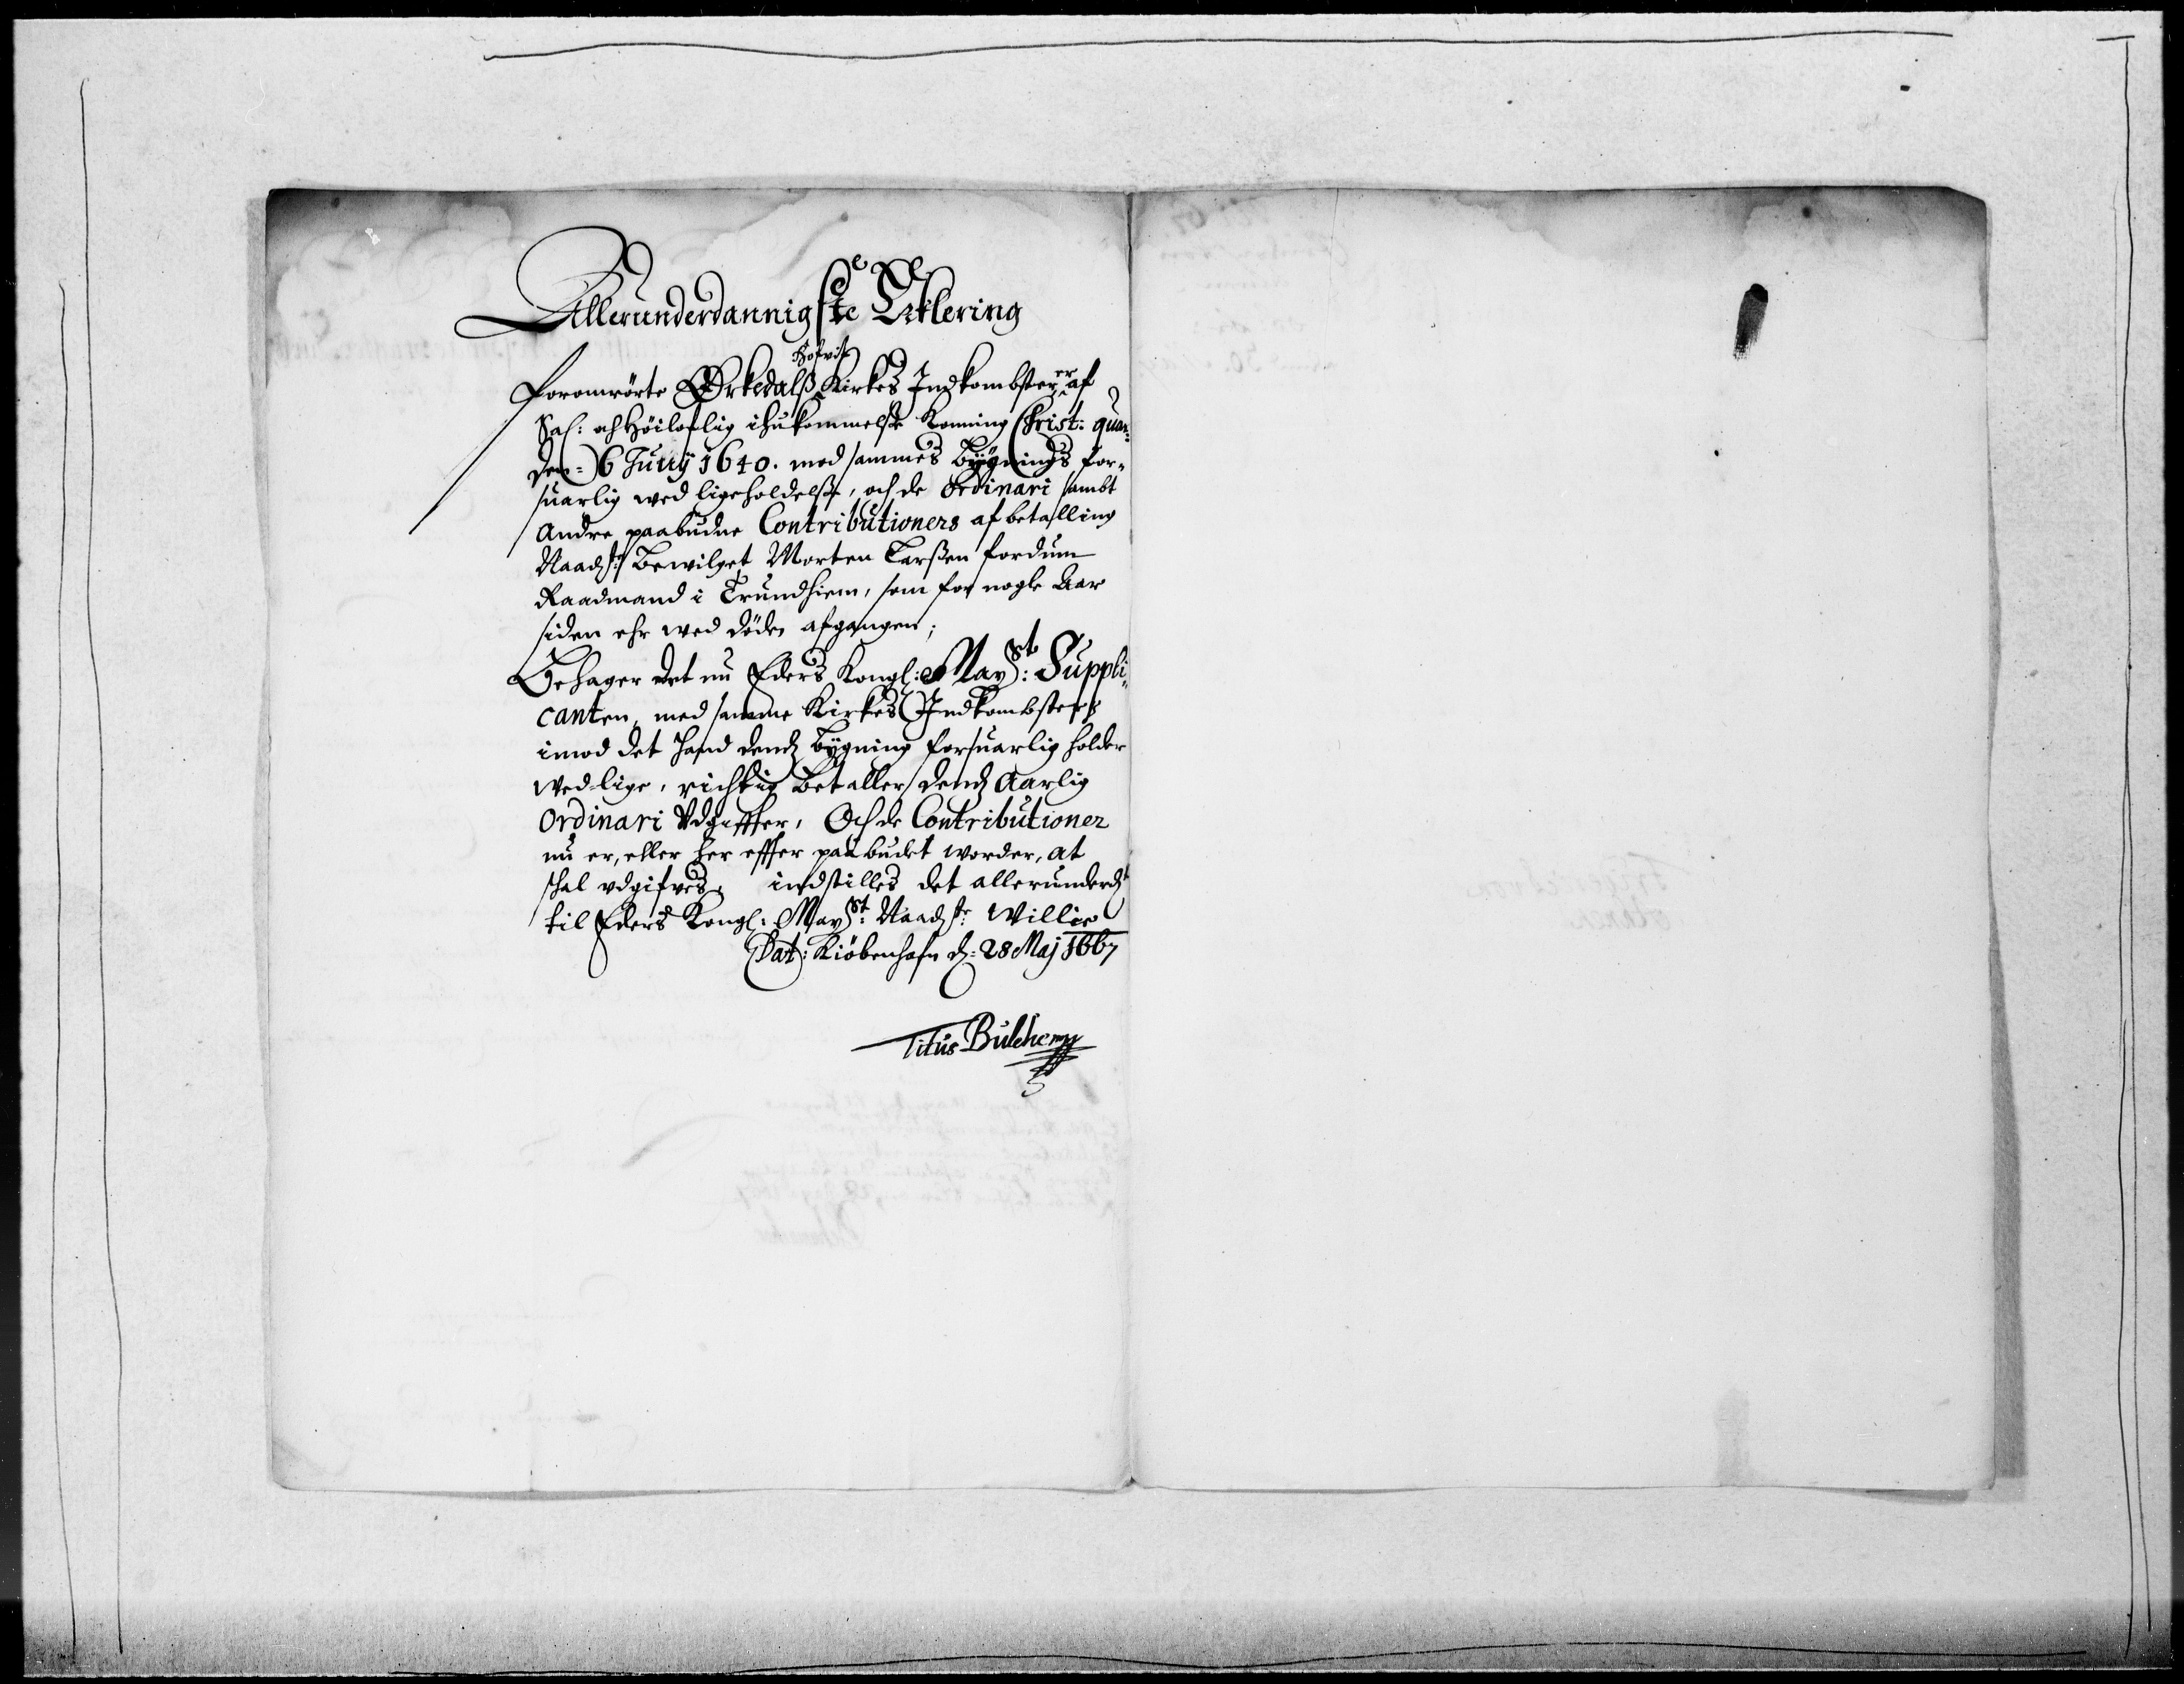 Allerunderdannigste Erklering
Hofvit
Foromrörte Ørkedalß Kirkes Indkombster, er af
Sal: och Höiloflig ihukommelse Konning Christ: quar:
den: 6 Junij 1640. mod sammes Bygnings for-
suarlig wed ligeholdelse, och de Ordinari sambt
Andre paabudne Contributioners afbetalling
Naadst: Bewilget Morten Larßen fordum
Raadmand i Trundhiem, som for nogle Aar
siden ehr wed döden afgangen;
Behager det nu Eders Kongl: Mayst: Suppli-
canten, med samme Kirkes Indkombster
imod det hand dend bygning forsuarlig holder
wed-lige, richtig Betaller dend Aarlig
Ordinari Vdgiffter, Och de Contributioner
nu er, eller her effter paabudet worder, at
skal vdgifves, indstilles det allerunderdt
til Eders Kongl: Mayst: Naadste: Willie
Dat: Kiöbenhafn d: 28 Maj 1667
Titus Bulchemy